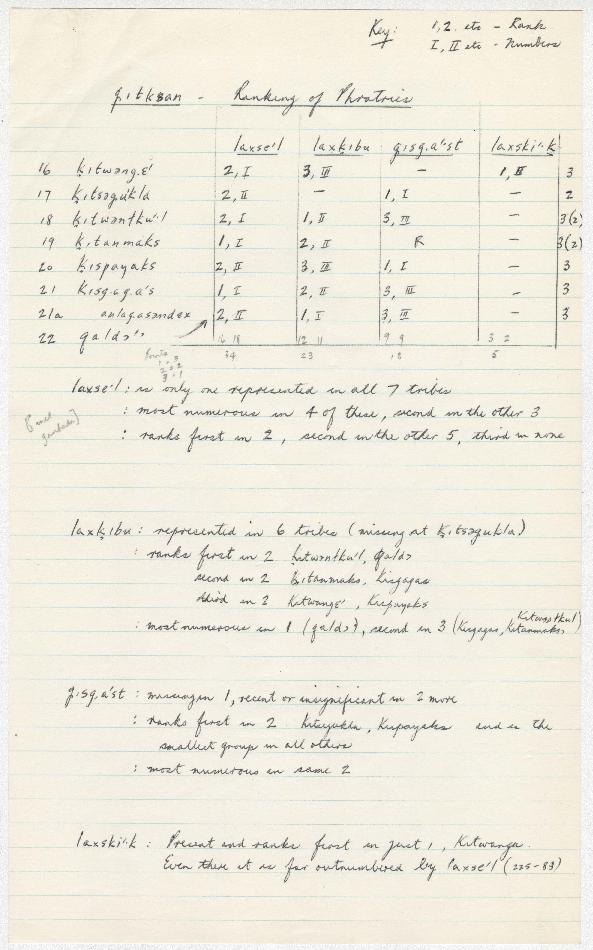 Key: 1,2. etc - Rank
I, II etc - Numbers
gıtksan - Ranking of Phratries
laxse'l laxḳıbu gısg.a'st laxski'k
16 Ḳıtwang.ɛ' 2, I 3, III - 1, II 3
17 Ḳıtsəgúkla 2, II - 1, I - 2
18 Ḳıtwənłku'l 2, I 1, II 3, III - 3(2)
19 Ḳıtanmáks 1, I 2, II R - 3(2)
20 Ḳıspayaks 2, II 3, III 1, I - 3
21 Kısg.ag.a's 1, I 2, II 3, III - 3
21a anlagasəmdɛx 2, II 1, I 3, III - 3
22 qaldɔ''
16 18 12 11 9 9 3 2
Points 34 23 18 5
1 = 3
2 = 2
3 = 1
laxse'l : is only one represented in all 7 tribes
: most numerous in 4 of these, second in the other 3
: ranks first in 2, second in the other 5, third in none
laxḳıbu : represented in 6 tribes (missing at Ḳıtsəgukla)
: ranks first in 2 Ḳıtwənłku'l, Qaldɔ
second in 2 Ḳıtanmaks, Kisgagas
third in 2 Kitwangɛ', Kispayaks
Kitwanłkul
: most numerous in 1 (qaldɔ?), second in 3 (Kisgagas, Kitanmaks,
gısg.a'st : missing in 1, recent or insignificant in 2 more
: ranks first in 2 Kitsegukla, Kispayaks and is the
smallest group in all others
: most numerous in same 2
laxski'k : Present and ranks first in just 1, Kitwanga.
Even there it is far outnumbered by laxse'l (225-83)